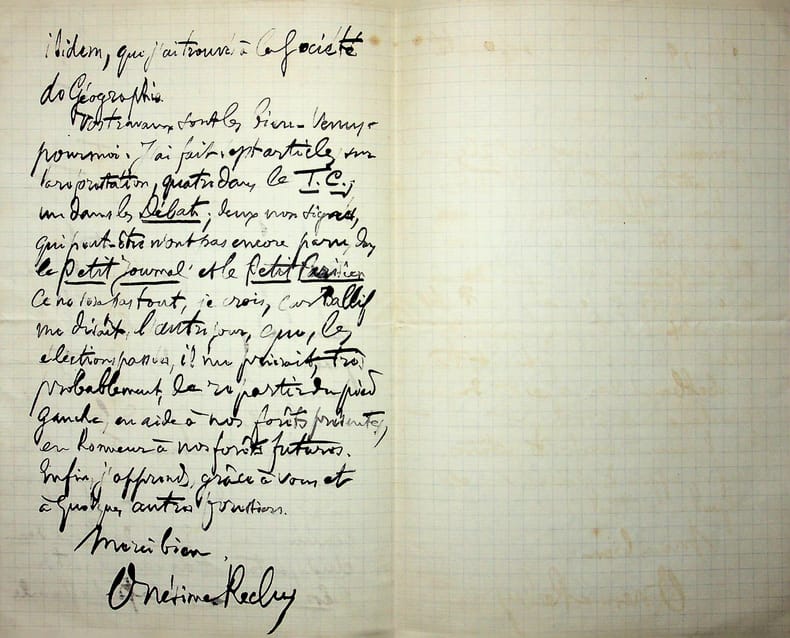 ibidem, que j'ai trouvés à la Société
de Géographie.
Vos travaux sont les bienvenus
pour moi. J'ai fait sept articles sur
la reforestation, quatre dans le T.C.;
un dans les Débats; deux non signés,
qui peut-être n'ont pas encore paru dans
le Petit Journal et le Petit Parisien
Ce ne sera pas tout, je crois, car Ballif
me disait, l'autre jour, que, les
élections passées, il me prierait, très
probablement, de repartir du pied
gauche, en aide à nos forêts présentes,
en honneur à nos forêts futures.
Enfin, j'apprends, grâce à vous et
à quelques autres forestiers.
Merci bien,
Onésime Reclus